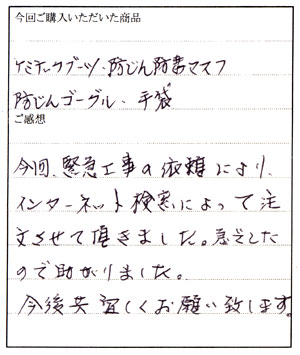 今回ご購入いただいた商品
ケミカルブーツ・防じん防毒マスク
防じんゴーグル・手袋
ご感想
今回、緊急工事の依頼により、
インターネット検索によって注
文させて頂きました。急ぎでした
ので助かりました。
今後共宜しくお願い致します。